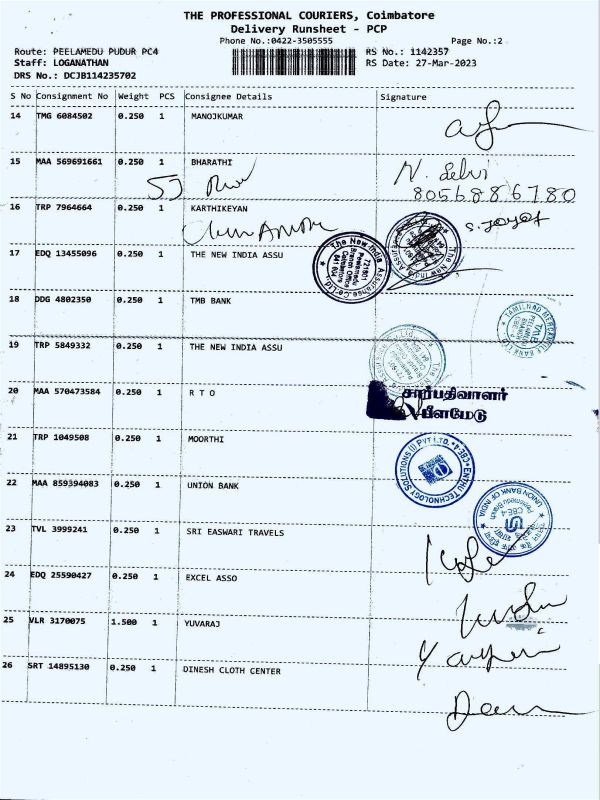 THE PROFESSIONAL COURIERS, Coimbatore
Delivery Runsheet - PCP
Phone No.:0422-3505555 Page No.:2
Route: PEELAMEDU PUDUR PC4 RS No.: 1142357
Staff: LOGANATHAN RS Date: 27-Mar-2023
DRS No.: DCJB114235702
S No Consignment No Weight PCS Consignee Details Signature
14 TMG 6084502 0.250 1 MANOJKUMAR
15 MAA 569691661 0.250 1 BHARATHI
N. Selvi
8056886780
16 TRP 7964664 0.250 1 KARTHIKEYAN
17 EDQ 13455096 0.250 1 THE NEW INDIA ASSU
The New India Assurance Co. Ltd.
721801
Peelamedu
Branch Office
Coimbatore
641 004
The New India Assurance
18 DDG 4802350 0.250 1 TMB BANK
TAMILNAD MERCANTILE BANK LTD
19 TRP 5849332 0.250 1 THE NEW INDIA ASSU
20 MAA 570473584 0.250 1 R T O
சார்பதிவாளர்
பீளமேடு
21 TRP 1049508 0.250 1 MOORTHI
ENTHU TECHNOLOGY SOLUTIONS (I) PVT LTD. CBE-4
22 MAA 859394083 0.250 1 UNION BANK
UNION BANK OF INDIA
Peelamedu Branch
CBE-4
23 TVL 3999241 0.250 1 SRI EASWARI TRAVELS
24 EDQ 25590427 0.250 1 EXCEL ASSO
25 VLR 3170075 1.500 1 YUVARAJ
26 SRT 14895130 0.250 1 DINESH CLOTH CENTER